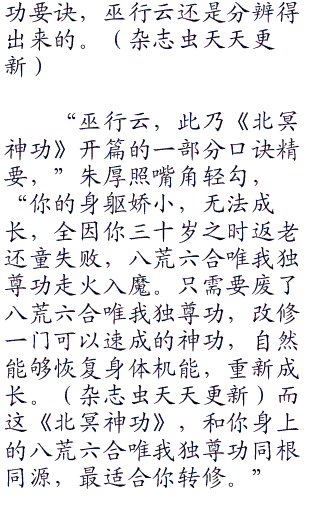 功要诀，巫行云还是分辨得
出来的。（杂志虫天天更
新）
“巫行云，此乃《北冥
神功》开篇的一部分口诀精
要，”朱厚照嘴角轻勾，
“你的身躯娇小，无法成
长，全因你三十岁之时返老
还童失败，八荒六合唯我独
尊功走火入魔。只需要废了
八荒六合唯我独尊功，改修
一门可以速成的神功，自然
能够恢复身体机能，重新成
长。（杂志虫天天更新）而
这《北冥神功》，和你身上
的八荒六合唯我独尊功同根
同源，最适合你转修。”